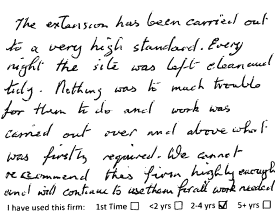 The extension has been carried out
to a very high standard. Every
night the site was left clean and
tidy. Nothing was to much trouble
for them to do and work was
carried out over and above what
was firstly required. We cannot
recommend this firm highly enough
and will continue to use them for all work needed
I have used this firm: 1st Time ☐ <2 yrs ☐ 2-4 yrs ☑ 5+ yrs ☐